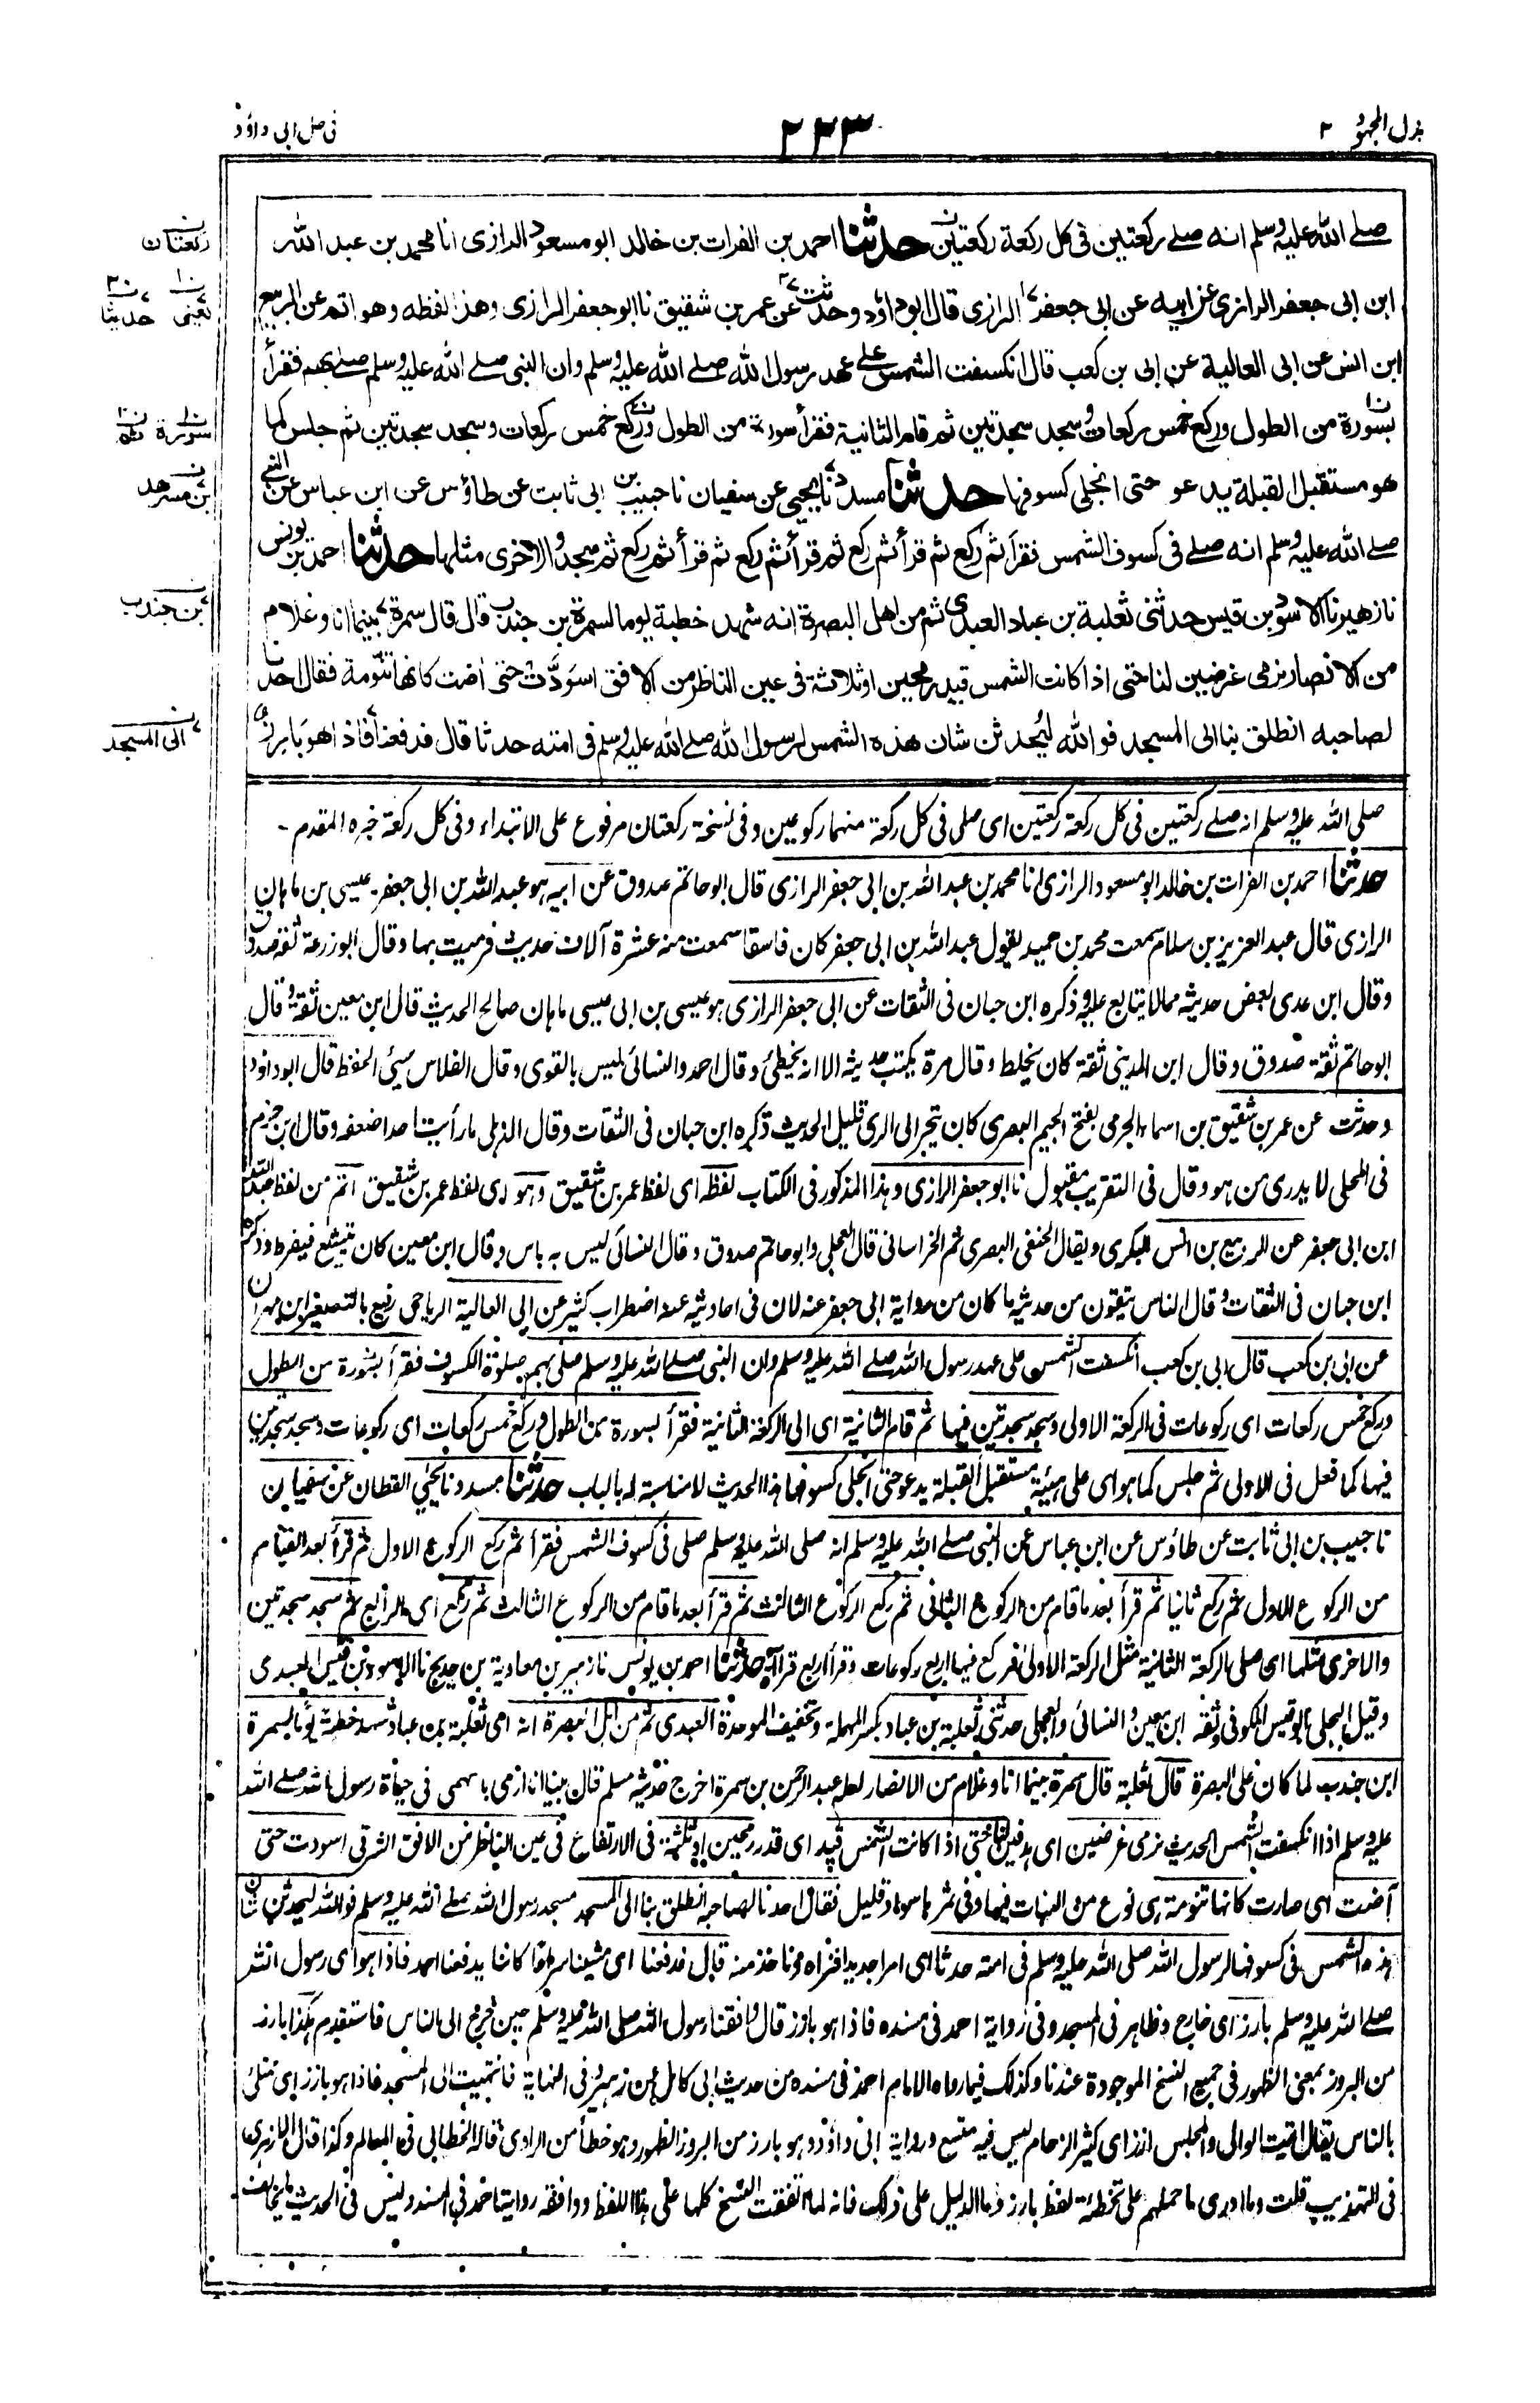 بذل المجهود ٢
٢٣٣
فى حل ابى داؤد
صلے الله عليه وسلم انه صلے ركعتين فى كل ركعة ركعتين حدثنا احمد بن الفرات بن خالد ابو مسعود الرازى انا محمد بن عبد الله
ابن ابى جعفر الرازى عن ابيه عن ابى جعفر الرازى قال ابو داؤد وحدثت عن عمر بن شقيق نا ابو جعفر الرازى وهذا لفظه وهو اتم عن الربيع
ابن انس عن ابى العالية عن ابى بن كعب قال انكسفت الشمس على عهد رسول الله صلے الله عليه وسلم وان النبى صلے الله عليه وسلم صلے بهم فقرأ
بسورة من الطول وركع خمس ركعات وسجد سجدتين ثم قام الثانية فقرأ سورة من الطول وركع خمس ركعات وسجد سجدتين ثم جلس كما
هو مستقبل القبلة يدعو حتى انجلى كسوفها حدثنا مسدد نا يحيى عن سفيان نا حبيب بن ابى ثابت عن طاؤس عن ابن عباس عن النبى
صلے الله عليه وسلم انه صلے فى كسوف الشمس فقرأ ثم ركع ثم قرأ ثم ركع ثم قرأ ثم ركع ثم قرأ ثم ركع ثم سجد والاخرى مثلها حدثنا احمد بن يونس
نا زهير نا الاسود بن قيس حدثنى ثعلبة بن عباد العبدى ثم من اهل البصرة انه شهد خطبة يوما لسمرة بن جندب قال قال سمرة بينما انا وغلام
من الانصار نرمى غرضين لنا حتى اذا كانت الشمس قيد رمحين او ثلاثة فى عين الناظر من الافق اسودّت حتى اضت كانها تنّومة فقال احدنا
لصاحبه انطلق بنا الى المسجد فو الله ليُحدثن شان هذه الشمس لرسول الله صلے الله عليه وسلم فى امته حدثا قال فدفعنا فاذا هو بارز
ركعتان
يعنى حدثنا
سورة ثم
بن مسرهد
بن جندب
الى المسجد
صلى الله عليه وسلم انه صلے ركعتين فى كل ركعة ركعتين اى صلى فى كل ركعة منهما ركوعين وفى نسخة ركعتان مرفوع على الابتداء وفى كل ركعة خبره المقدم -
حدثنا احمد بن الفرات بن خالد ابو مسعود الرازى انا محمد بن عبد الله بن ابى جعفر الرازى قال ابو حاتم صدوق عن ابيه هو عبد الله بن ابى جعفر عيسى بن ماهان
الرازى قال عبد العزيز بن سلام سمعت محمد بن حميد يقول عبد الله بن ابى جعفر كان فاسقا سمعت منه عشرة آلاف حديث فرميت بها وقال ابو زرعة ثقة صدوق
وقال ابن عدى بعض حديثه مما لا يتابع عليه وذكره ابن حبان فى الثقات عن ابى جعفر الرازى هو عيسى بن ابى عيسى ماهان صالح الحديث قال ابن معين ثقة وقال
ابو حاتم ثقة صدوق وقال ابن المدينى ثقة كان يخلط وقال مرة يكتب حديثه الا انه يخطئ وقال احمد والنسائى ليس بالقوى وقال الفلاس سيئ الحفظ قال ابو داؤد
وحدثت عن عمر بن شقيق بن اسماء الجرمى بفتح الجيم البصرى كان يتجر الى الرى قليل الحديث ذكره ابن حبان فى الثقات وقال الذهلى ما رأيت احدا ضعفه وقال ابن حزم
فى المحلى لا يدرى من هو وقال فى التقريب مقبول نا ابو جعفر الرازى وهذا المذكور فى الكتاب لفظه اى لفظ عمر بن شقيق وهو اى لفظ عمر بن شقيق اتم من لفظ عبد الله
ابن ابى جعفر عن الربيع بن انس البكرى ويقال الحنفى البصرى ثم الخراسانى قال العجلى وابو حاتم صدوق وقال النسائى ليس به باس وقال ابن معين كان يتشيع فيفرط وذكره
ابن حبان فى الثقات وقال الناس يتقون من حديثه ما كان من رواية ابى جعفر عنه لان فى احاديثه عنه اضطراب كثير عن ابى العالية الرياحى رفيع بالتصغير ابن مهران
عن ابى بن كعب قال ابى بن كعب انكسفت الشمس على عهد رسول الله صلے الله عليه وسلم وان النبى صلے الله عليه وسلم صلى بهم صلوة الكسوف فقرأ بسورة من الطول
وركع خمس ركعات اى ركوعات فى الركعة الاولى وسجد سجدتين فيها ثم قام الثانية اى الى الركعة الثانية فقرأ بسورة من الطول وركع خمس ركعات اى ركوعات وسجد سجدتين
فيها كما فعل فى الاولى ثم جلس كما هو اى على هيئة مستقبل القبلة يدعو حتى انجلى كسوفها هذا الحديث لا مناسبة له بالباب حدثنا مسدد نا يحيى القطان عن سفيان
نا حبيب بن ابى ثابت عن طاؤس عن ابن عباس عن النبى صلے الله عليه وسلم انه صلى الله عليه وسلم صلى فى كسوف الشمس فقرأ ثم ركع الركوع الاول ثم قرأ بعد القيام
من الركوع الاول ثم ركع ثانيا ثم قرأ بعد ما قام من الركوع الثانى ثم ركع الركوع الثالث ثم قرأ بعد ما قام من الركوع الثالث ثم ركع اى الرابع ثم سجد سجدتين
والاخرى مثلها اى صلى الركعة الثانية مثل الركعة الاولى فركع فيها اربع ركوعات وقرأ اربع قرآة حدثنا احمد بن يونس نا زهير بن معاوية بن حديج نا الاسود بن قيس العبدى
وقيل البجلى ابو قيس الكوفى وثقه ابن معين والنسائى والعجلى حدثنى ثعلبة بن عباد بكسر المهملة وتخفيف الموحدة العبدى ثم من اهل البصرة انه اى ثعلبة بن عباد شهد خطبة يوما لسمرة
ابن جندب لما كان على البصرة قال ثعلبة قال سمرة بينما انا وغلام من الانصار لعله عبد الرحمن بن سمرة اخرج حديثه مسلم قال بينا انا ارمى باسهمى فى حياة رسول الله صلے الله
عليه وسلم اذا انكسفت الشمس الحديث نرمى غرضين اى هدفين لنا حتى اذا كانت الشمس قيد اى قدر رمحين او ثلثة فى الارتفاع فى عين الناظر من الافق الشرقى اسودت حتى
آضت اى صارت كانها تنومة هى نوع من النبات فيها وفى ثمرها سواد قليل فقال احدنا لصاحبه انطلق بنا الى المسجد مسجد رسول الله صلے الله عليه وسلم فو الله ليحدثن شان
هذه الشمس فى كسوفها لرسول الله صلى الله عليه وسلم فى امته حدثا اى امرا جديدا فنراه وناخذ منه قال فدفعنا اى مشينا سراعا كاننا يدفعنا احد فاذا هو اى رسول الله
صلے الله عليه وسلم بارز اى خارج وظاهر فى المسجد وفى رواية احمد فى مسنده فاذا هو بارز قال وافقنا رسول الله صلى الله عليه وسلم حين خرج الى الناس فاستقدم هكذا بارز
من البروز بمعنى الظهور فى جميع النسخ الموجودة عندنا وكذلك فيما رواه الامام احمد فى مسنده من حديث ابى كامل عن زهير وفى النهاية فانتهيت الى المسجد فاذا هو بازز اى ممتلئ
بالناس يقال اتيت الوالى والمجلس ازز اى كثير الزحام ليس فيه متسع ورواية ابى داؤد وهو بارز من البروز الظهور وهو خطأ من الراوى قاله الخطابى فى المعالم وكذا قال الازهرى
فى التهذيب قلت وما ادرى ما حملهم على تخطئة لفظ بارز وما الدليل على ذلك فانه لما اتفقت النسخ كلها على هذا اللفظ ووافقه رواية احمد فى المسند وليس فى الحديث ما يخالفه